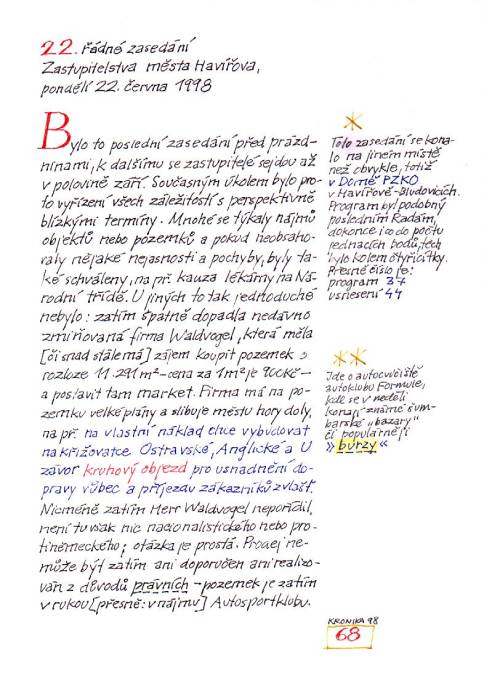 22. řádné zasedání
Zastupitelstva města Havířova,
pondělí 22. června 1998
Bylo to poslední zasedání před prázd-
ninami, k dalšímu se zastupitelé sejdou až
v polovině září. Současným úkolem bylo pro-
to vyřízení všech záležitostí s perspektivně
blízkými termíny. Mnohé se týkaly nájmů
objektů nebo pozemků a pokud neobsaho-
valy nějaké nejasnosti a pochyby, byly ta-
ké schváleny, na př. kauza lékárny na Ná-
rodní třídě. U jiných to tak jednoduché
nebylo: zatím špatně dopadla nedávno
zmiňovaná firma Waldvogel, která měla
[či snad stále má] zájem koupit pozemek o
rozloze 11.291 m² – cena za 1m² je 900Kč –
a postavit tam market. Firma má na po-
zemku velké plány a slibuje městu hory doly,
na př. na vlastní náklad chce vybudovat
na křižovatce Ostravské, Anglické a U
závor kruhový objezd pro usnadnění do-
pravy vůbec a příjezdu zákazníků zvlášť.
Nicméně zatím Herr Waldvogel nepořídil,
není tu však nic nacionalistického nebo pro-
tiněmeckého; otázka je prostá. Prodej ne-
může být zatím ani doporučen ani realizo-
ván z důvodů právních – pozemek je zatím
v rukou [přesně: v nájmu] Autosportklubu.
*
Toto zasedání se kona-
lo na jiném místě
než obvykle, totiž
v Domě PZKO
v Havířově-Bludovicích.
Program byl podobný
posledním Radám,
dokonce i co do počtu
jednacích bodů, těch
bylo kolem čtyřicítky.
Přesné číslo je:
program 37
usnesení 44
**
Jde o autocvičiště
autoklubu Formule,
kde se v neděli
konají známé šum-
barské „bazary"
či populárněji
»burzy«
KRONIKA 98
68